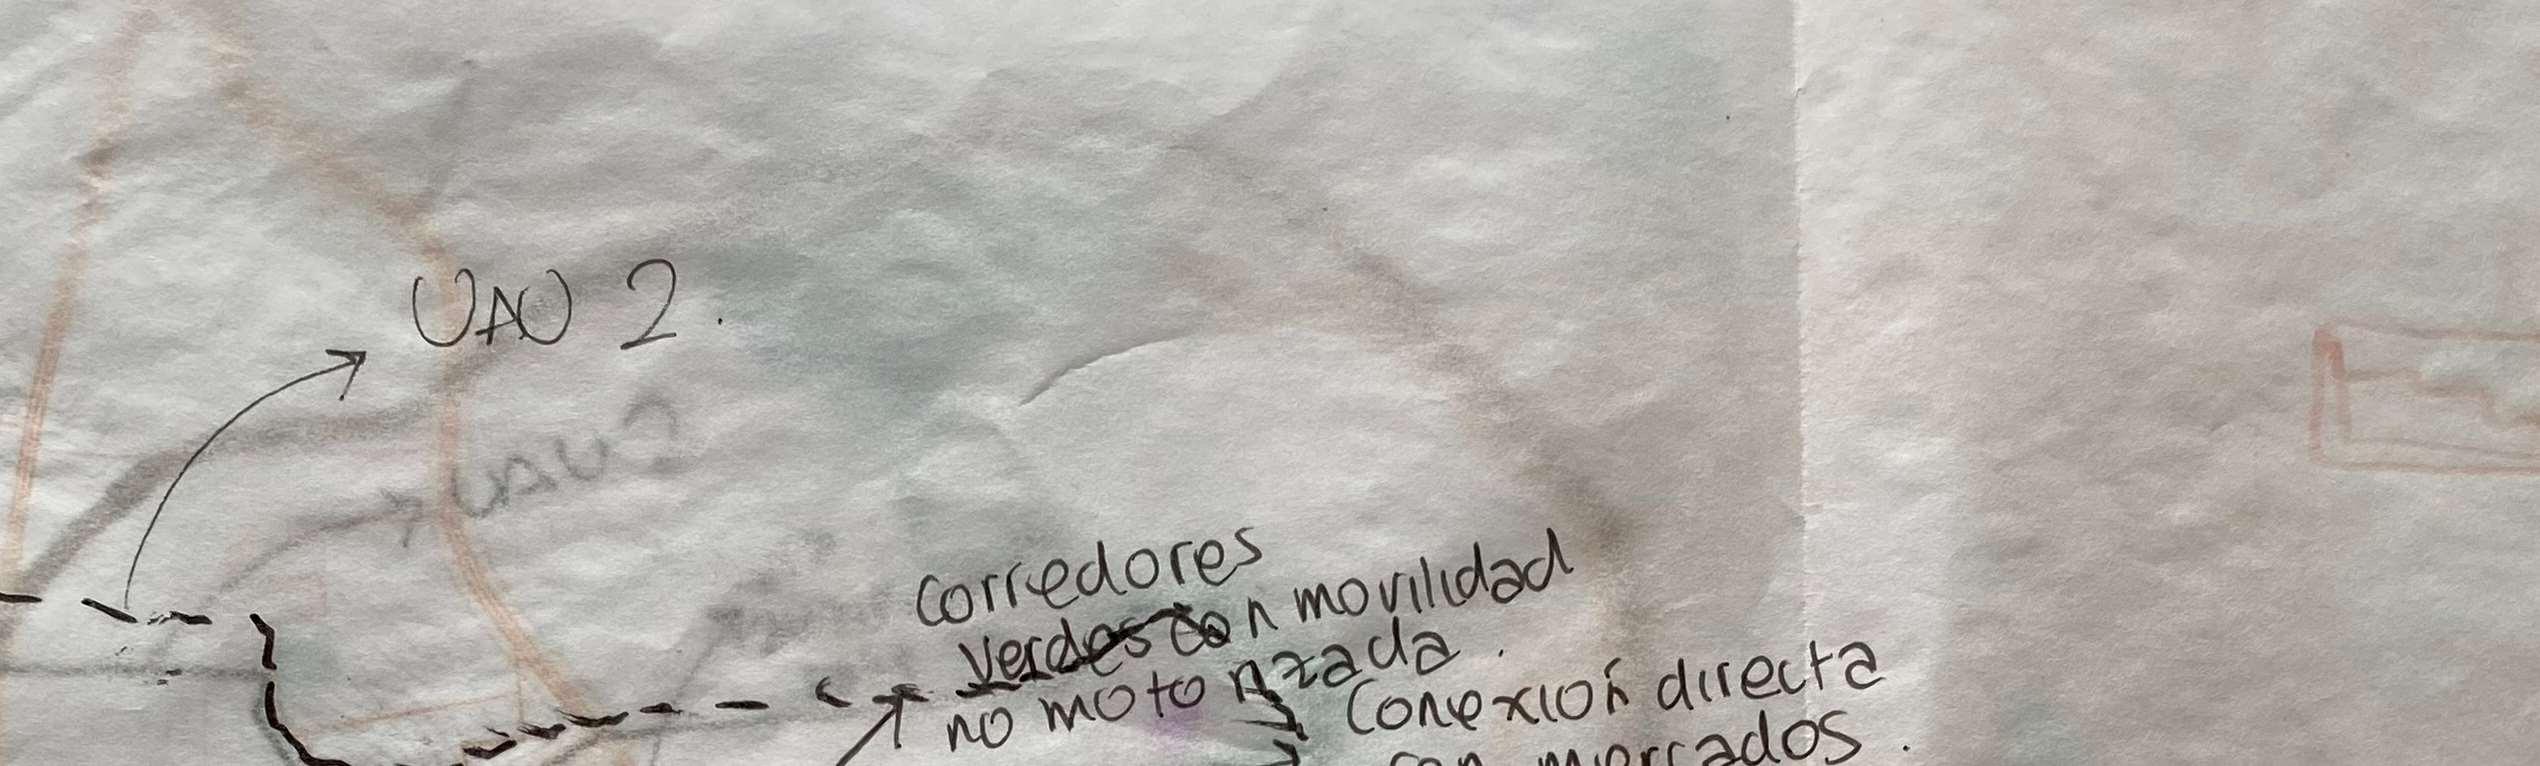 UAU 2.
UAU 2
corredores
verdes con movilidad
no motorizada.
Conexión directa
con mercados.